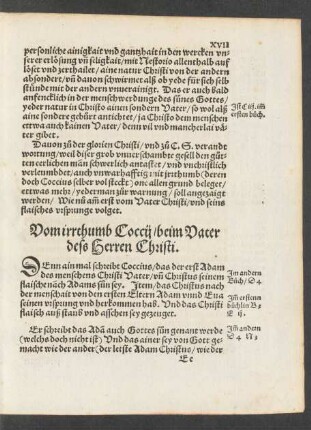 XVII
personliche ainigkait vnd gantzhait in den wercken vn-
serer erlösung vñ seligkait / mit Nestorio allenthalb auf
löset vnd zerthailet / aine natur Christi von der andern
absondert / vñ dauon schwirmet als ob yede für sich selb
stünde mit der andern vnuerainigt. Das er auch bald
anfencklich in der menschwerdunge des sünes Gottes /
yeder natur in Christo ainen sondern Vater / so wol als
aine sondere gebürt antichtet / ja Christo dem menschen
etwa auch kainen Vater / denn vil vnd mancherlai vä-
ter gibet.
Ist C iij. im
ersten büch.
Dauon zů der glorien Christi / vnd zů C. S. verandt
worttung / weil diser grob vnuerschambte gesell den gůt-
ten eerlichen man schwerlich antastet / vnd vnchristlich
verleumbdet / auch vnwarhafftig / vil jrrthumb (deren
doch Coccius selber vol steckt) on allen grund beleget /
etwas mehr / yederman zur warnung / soll angezaigt
werden / Wie nů am erst vom Vater Christi / vnd seins
flaisches vrsprunge volget.
Vom irrthumb Coccij / beim Vater
dess Herren Christi.
DEnn ainmal schreibt Coccius / das der erst Adam
des menschens Christi Vater / vñ Christus seinem
flaische nach Adams sün sey. Item / das Christus nach
der menschait von den ersten Eltern Adam vnnd Eua
seinen vrsprung vnd herkommen hab. Vnd das Christi
flaisch auß staub vnd asschen sey gezeuget.
Im andern
Büch / S 4
Im erstenn
büchlin B 3
E ij.
Er schreibt das Adã auch Gottes sůn genant werde
(welchs doch nicht ist) Vnd das ainer sey von Gott ge-
macht wie der ander (der letste Adam Christus / wie der
Im andern
S 4 N 3
Ee